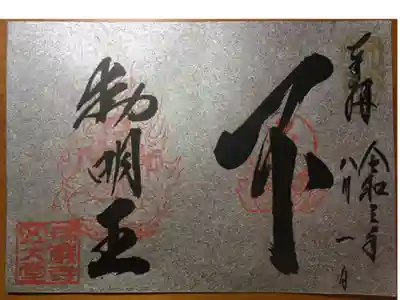 奉拝
令和三年
八月一日
不
動明王
五大堂